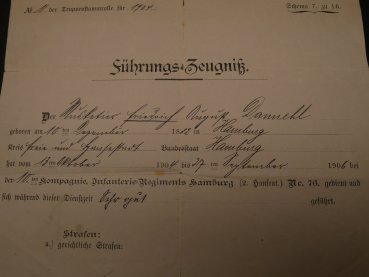 № der Truppenstammrolle für 1904. Schema 7. zu 16.
Führungs-Zeugniß.
Der Musketier Friedrich August Dannehl
geboren am 10 ten Dezember in Hamburg
Kreis Freie und Hansestadt Bundesstaat Hamburg
hat vom ten Oktober 1904 bis 27 ten September 1906 bei
der ten Kompagnie, Infanterie-Regiments Hamburg (2. Hanseat.) No. 76. gedient und
sich während dieser Dienstzeit Sehr gut geführt.
Strafen:
a.) gerichtliche Strafen: